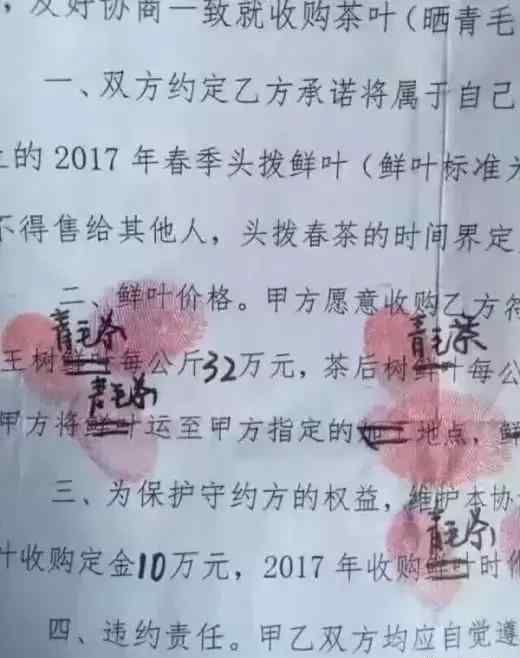 ，友好协商一致就收购茶叶（晒青毛
一、双方约定乙方承诺将属于自己
的 2017 年春季头拨鲜叶（鲜叶标准为
不得售给其他人，头拨春茶的时间界定
二、鲜叶价格。甲方愿意收购乙方符
青毛茶 青毛茶
王树鲜叶每公斤32万元，茶后树鲜叶每公
青毛茶
甲方将鲜叶运至甲方指定的加工地点，鲜
三、为保护守约方的权益，维护本协
青毛茶
叶收购定金10万元，2017 年收购鲜叶时
四、违约责任。甲乙双方均应自觉遵